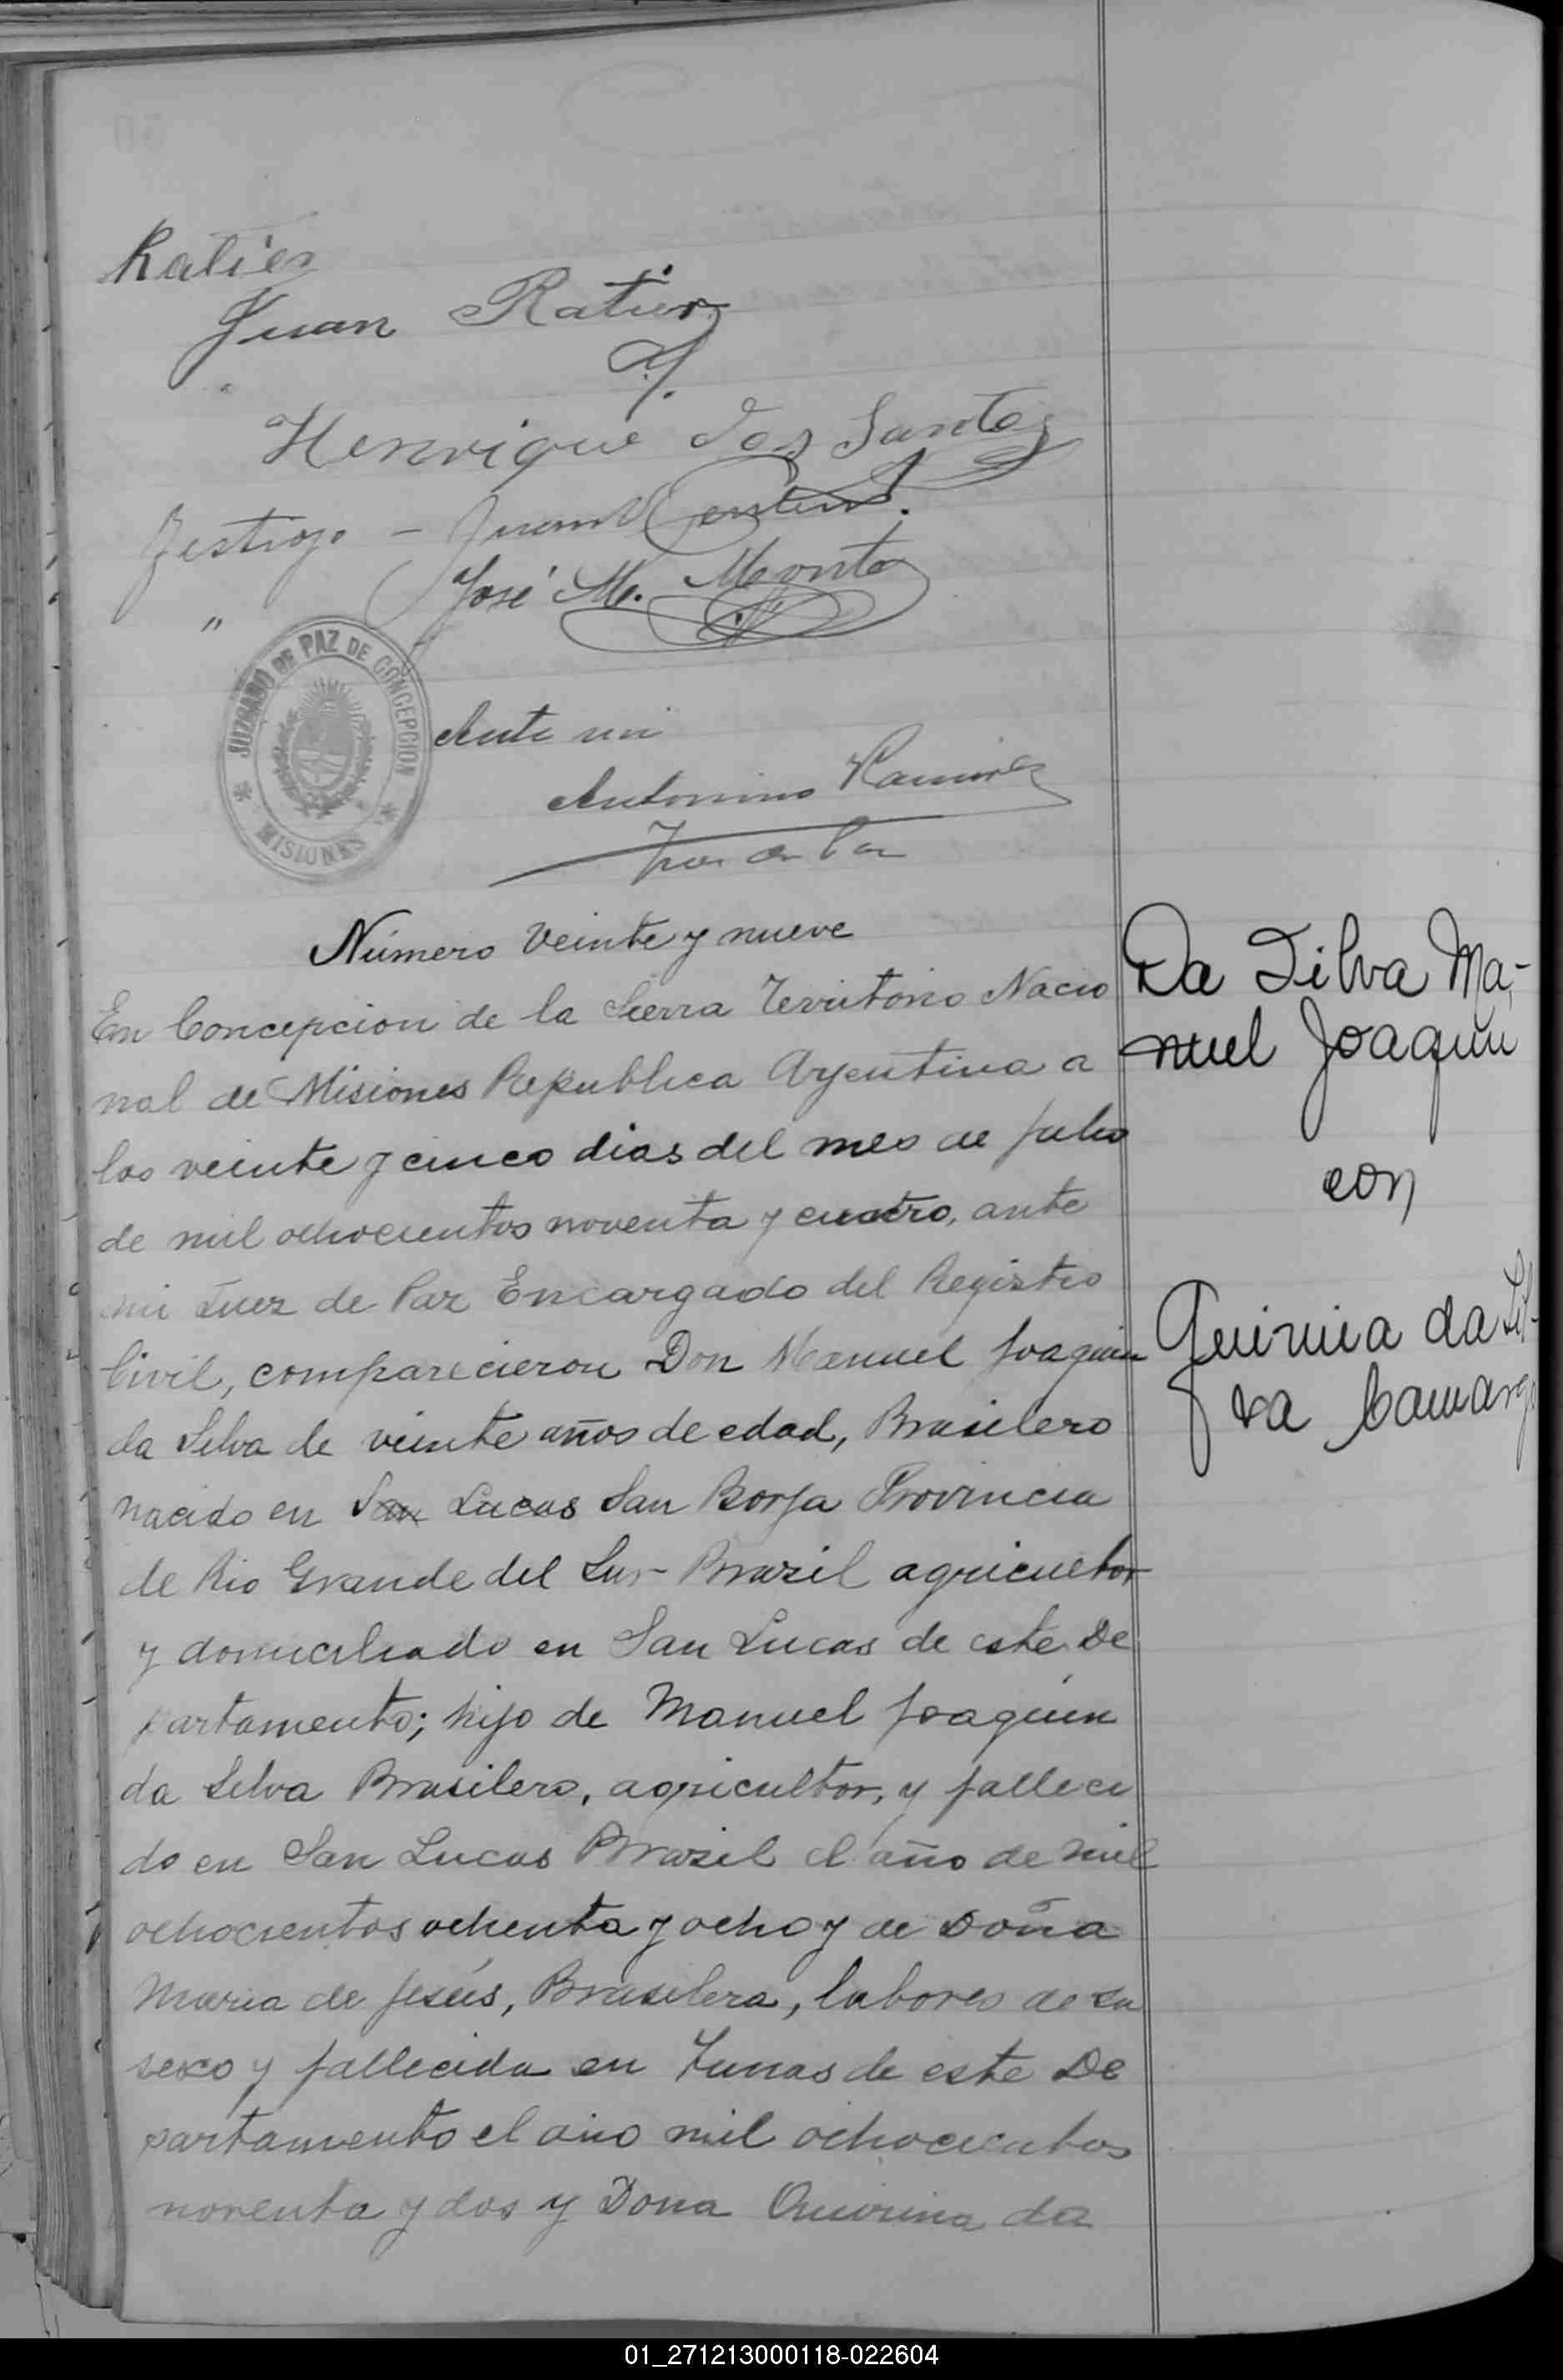 Ratier
Juan Ratier
Henrique dos Santos
Testigo - Juan Centeno.
" José M. Montes
JUZGADO DE PAZ DE CONCEPCION
* MISIONES *
Ante mi
Antonino Ramirez
Juez de Paz
Número Veinte y nueve
En Concepcion de la Sierra Territorio Nacio
nal de Misiones Republica Argentina a
los veinte y cinco dias del mes de Julio
de mil ochocientos noventa y cuatro, ante
mi Juez de Paz Encargado del Registro
Civil, comparecieron Don Manuel Joaquin
da Silva de veinte años de edad, Brasilero
nacido en San Lucas San Borja Provincia
de Rio Grande del Sur Brazil agricultor
y domiciliado en San Lucas de este De
partamento; hijo de Manuel Joaquin
da Silva Brasilero, agricultor, y falleci
do en San Lucas Brazil el año de mil
ochocientos ochenta y ocho y de Doña
Maria de Jesús, Brasilera, labores de su
sexo y fallecida en Tunas de este De
partamento el año mil ochocientos
noventa y dos y Dona Quirina da
Da Silva Ma-
nuel Joaquin
con
Quirina da Sil-
va Camargo
01_271213000118-022604